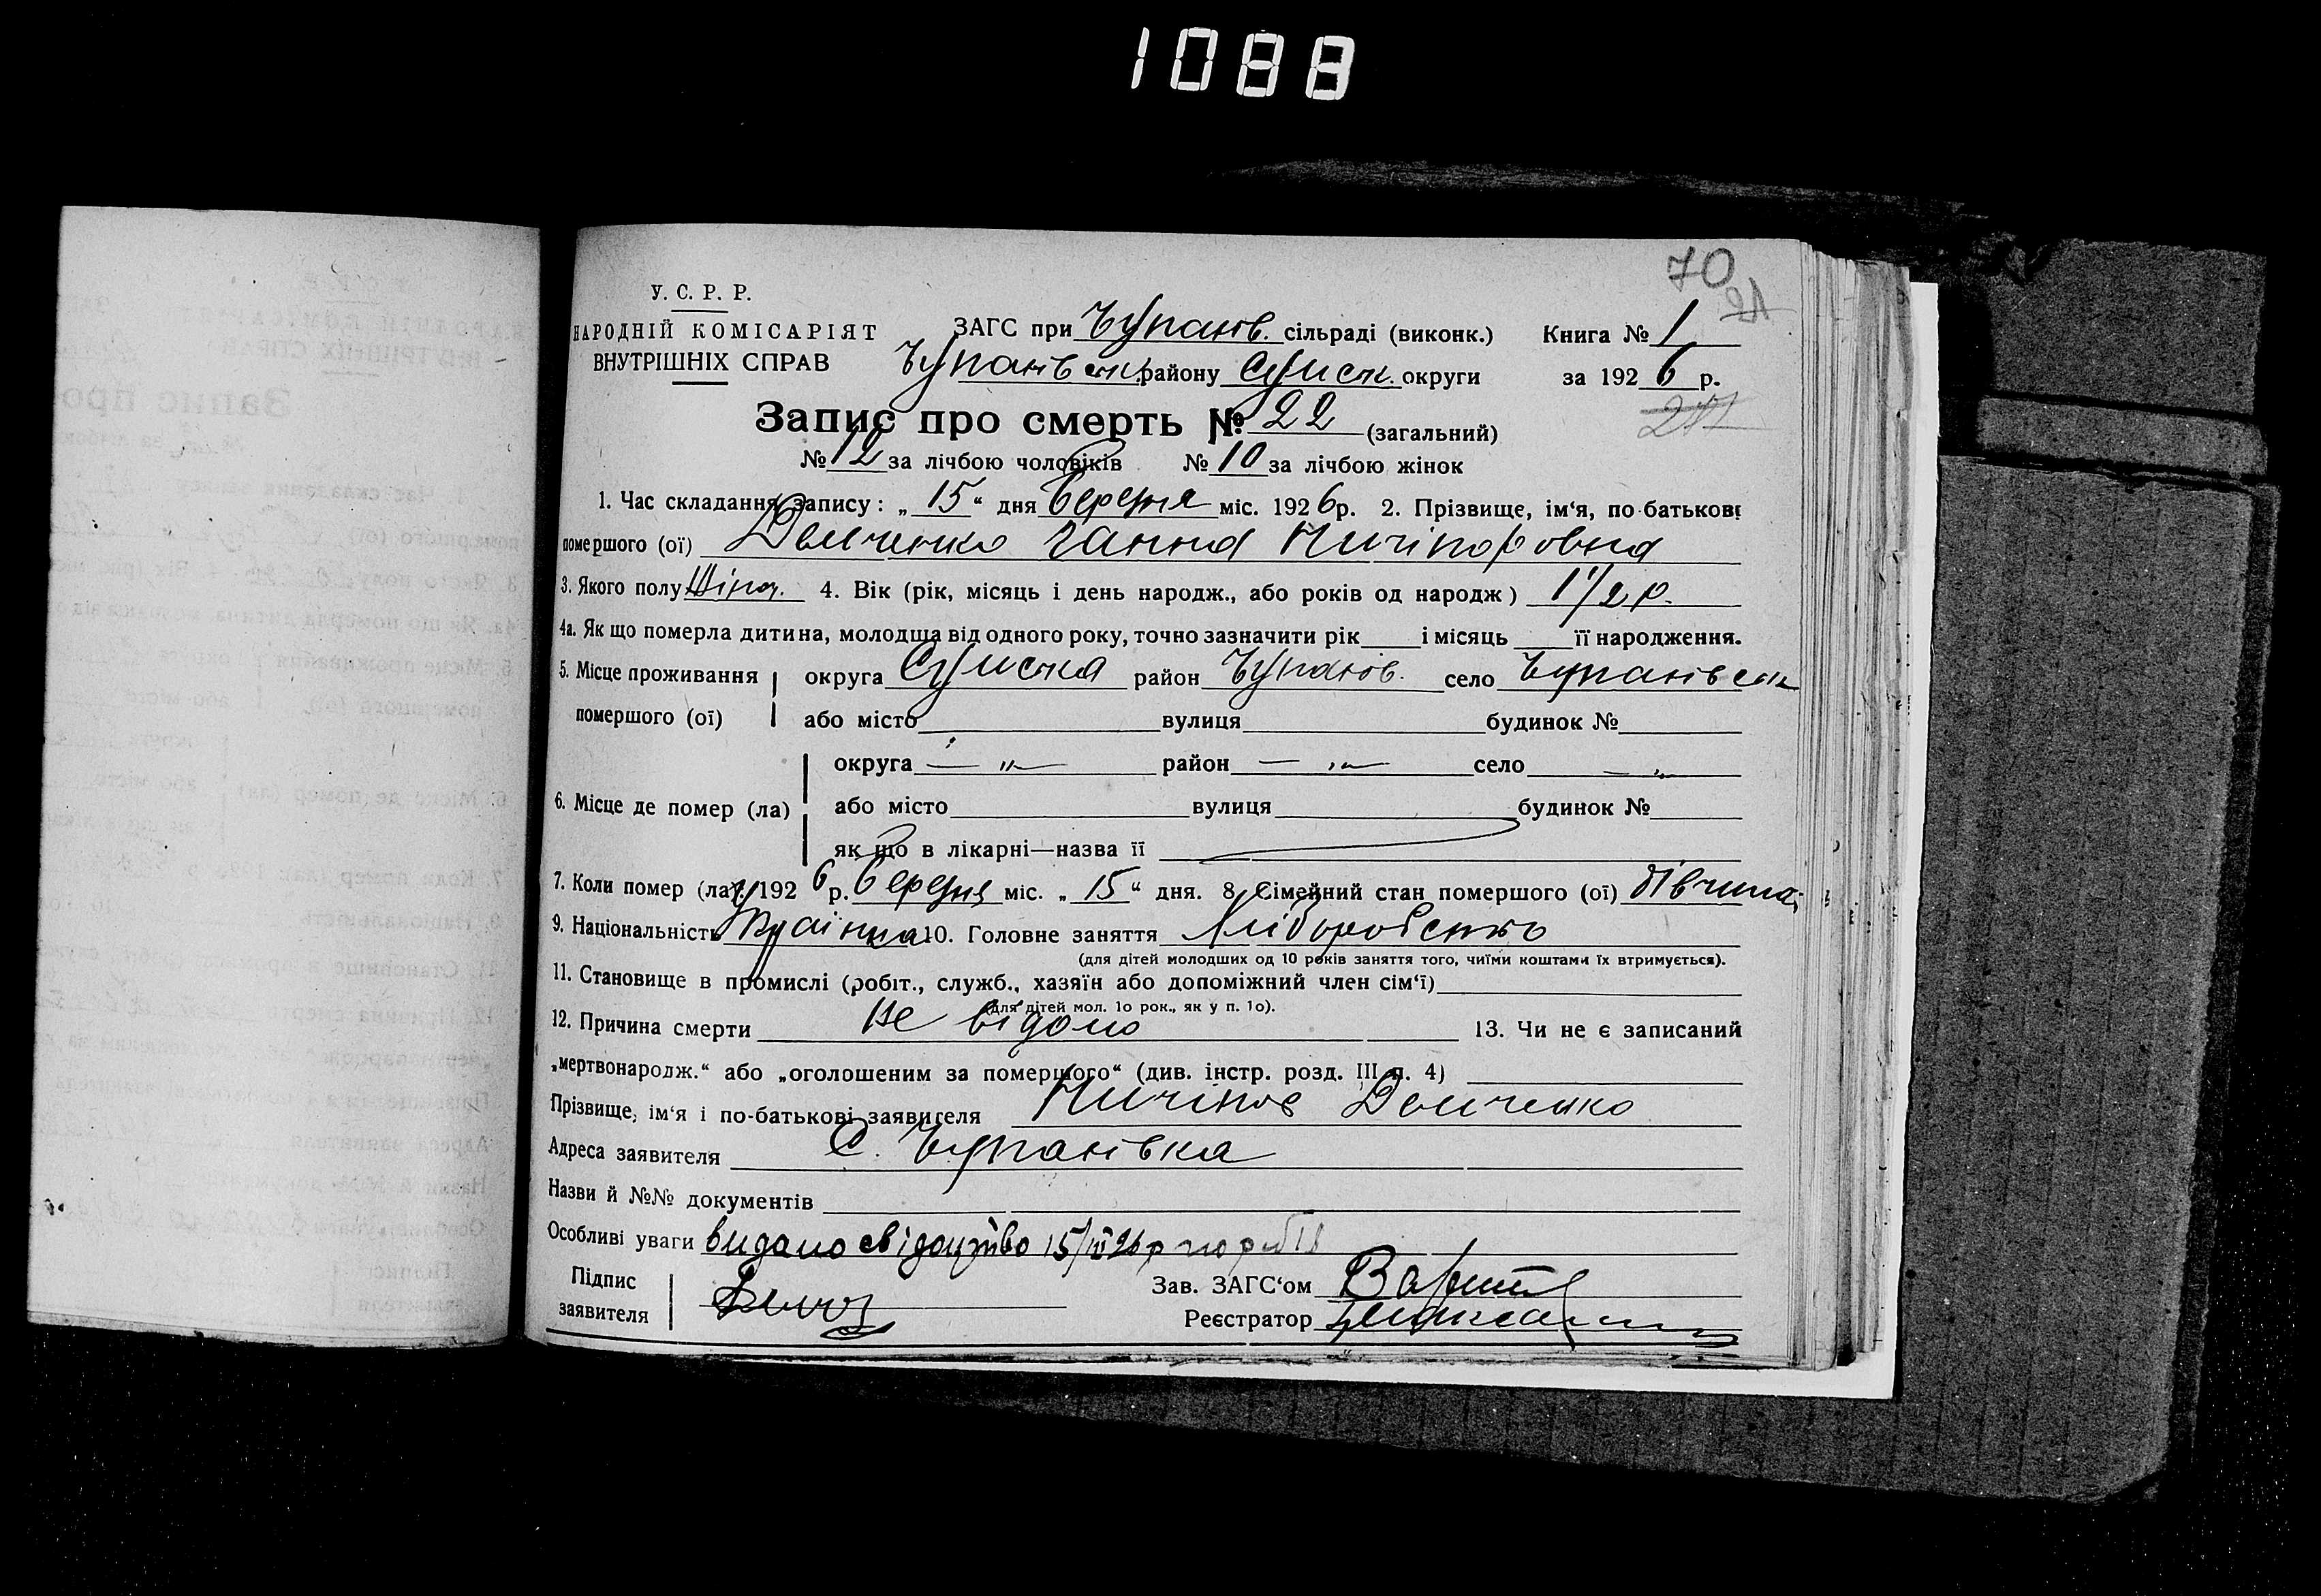 1088
70
У. С. Р. Р.
НАРОДНІЙ КОМІСАРІЯТ
ВНУТРІШНІХ СПРАВ
ЗАГС при Чупахів. сільраді (виконк.) Книга № 1
Чупахівськ. району Сумськ. округи за 1926 р.
Запис про смерть № 22 (загальний)
№ 12 за лічбою чоловіків № 10 за лічбою жінок
1. Час складання запису: „15“ дня березня міс. 1926р. 2. Прізвище, ім‘я, по-батькові
помершого (ої) Демченко Ганна Ничіпоровна
3. Якого полу Жіноч. 4. Вік (рік, місяць і день народж., або років од народж) 1 1/2 р.
4а. Як що померла дитина, молодша від одного року, точно зазначити рік і місяць її народження.
5. Місце проживання округа Сумська район Чупахів. село Чупахівськ
помершого (ої) або місто вулиця будинок №
округа — „— район — „— село — „
6. Місце де помер (ла) або місто вулиця будинок №
як що в лікарні—назва її
7. Коли помер (ла) 1926 р. березня міс. „15“ дня. 8. Сімейний стан помершого (ої) дівчина
9. Національність Українка 10. Головне заняття Хліборобство
(для дітей молодших од 10 років заняття того, чиїми коштами їх втримується).
11. Становище в промислі (робіт., служб., хазяїн або допоміжний член сім‘ї)
(для дітей мол. 1о рок., як у п. 1о).
12. Причина смерти Не відомо 13. Чи не є записаний
„мертвонародж.“ або „оголошеним за помершого“ (див. інстр. розд. III п. 4)
Прізвище, ім‘я і по-батькові заявителя Ничіпор Демченко
Адреса заявителя С. Чупахівка
Назви й №№ документів
Особливі уваги видано свідоцтво 15/III 26 р
Підпис
заявителя
Зав. ЗАГС‘ом
Реєстратор